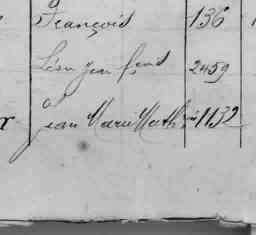 François 136
Léon Jean frcois 2459
r Jean Marie Math 1132